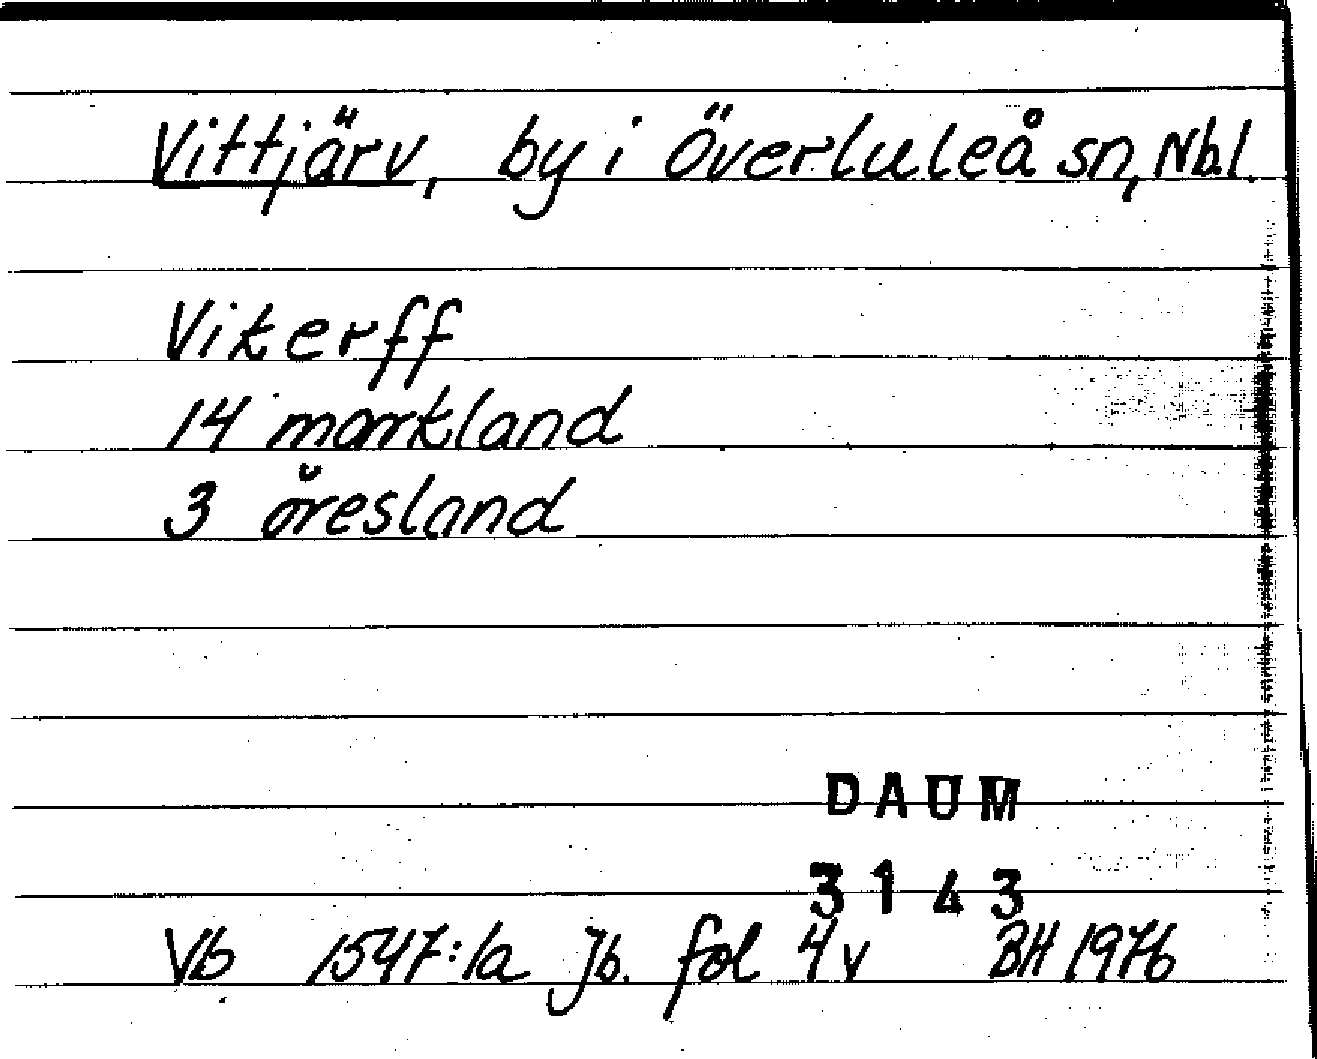 Vittjärv, by i Överluleå sn, Nb.l.
Viterff
14 markland
3 öresland
DAUM
3143
Vb 1547:1a Jb. fol 4v BH 1976